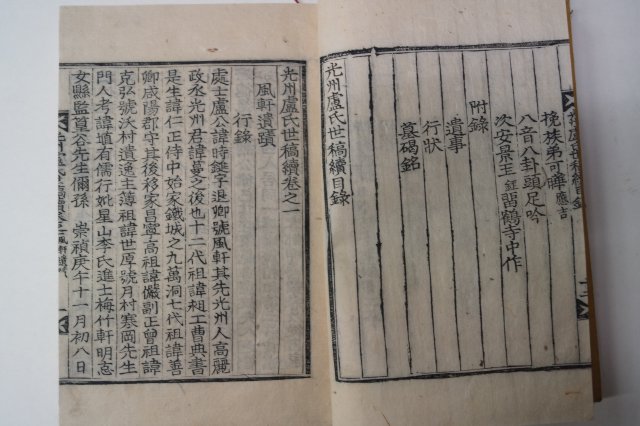 挽族弟可曄應吉
八音八卦頭足吟
次安景玉鈺習鶴寺中作
附錄
遺事
行狀
墓碣銘
光州盧氏世稿續目錄
光州盧氏世稿續卷之一
風軒遺蹟
行錄
處士盧公諱時鍵字退卿號風軒其先光州人高麗
政丞光州君諱蔓之後也十二代祖諱超工曹典書
是生諱仁正侍中始家鐵城之九萬洞七代祖諱善
卿咸陽郡守其後移家昌寧高祖諱儼副正曾祖諱
克弘號沃村遺逸主簿祖諱世厚號月村寒岡先生
門人考諱塡有儒行妣星山李氏進士梅竹軒明怘
女縣監篁谷先生偁孫 崇禎庚午十一月初八日